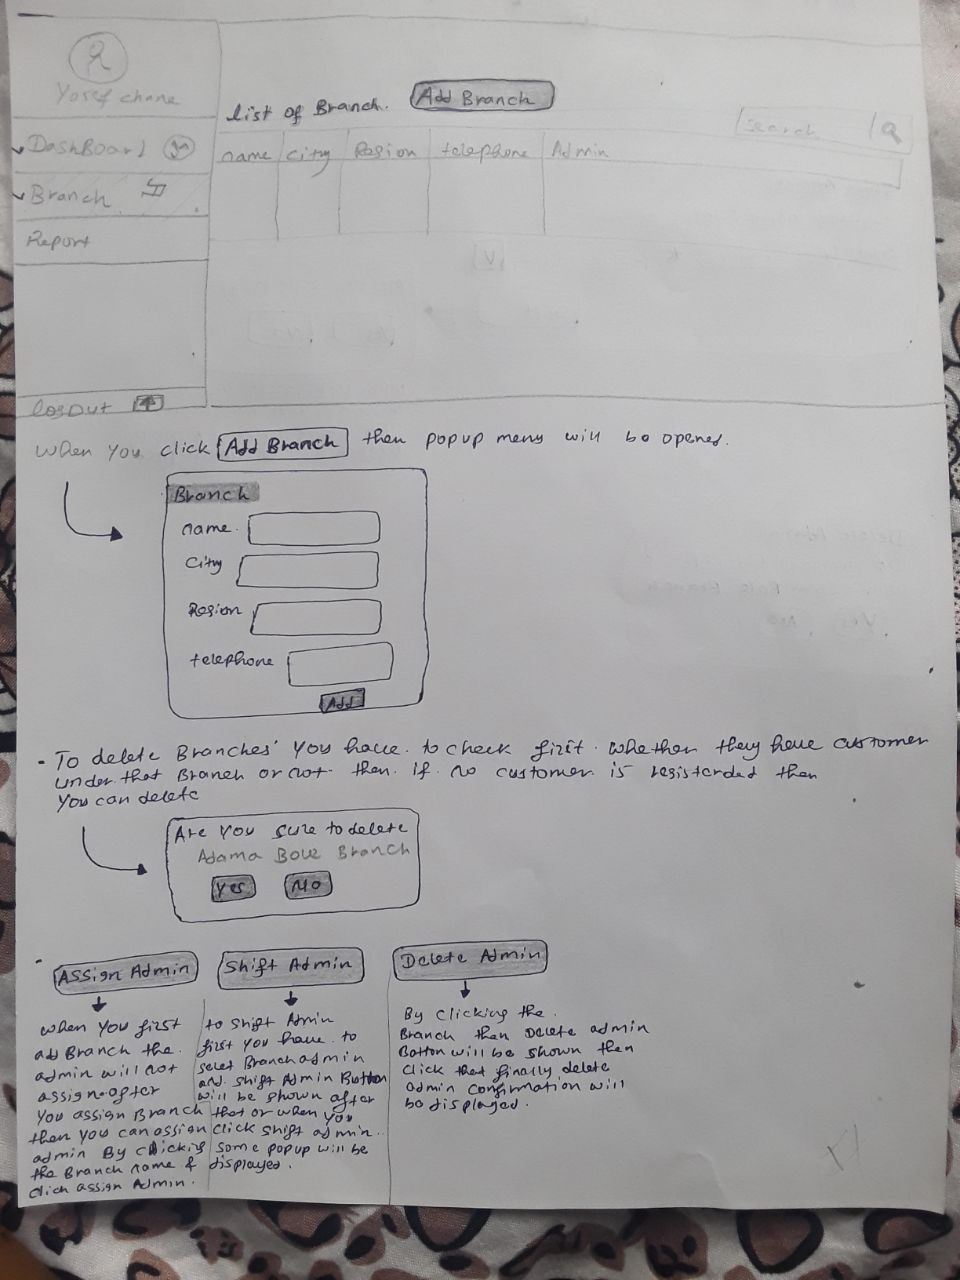 Yosef chane
DashBoard
Branch
Report
logout
list of Branch. Add Branch
Search
name city Region telephone Admin
When you click Add Branch then popup menu will bo opened.
Branch
name.
City
Region
telephone
Add
- To delete Branches' you have. to check first. whether they have customer
under that Branch or not. then. if no customer is registerded then
you can delete
Are you sure to delete
Adama Bole Branch
Yes No
Assign Admin
when you first
add Branch the.
admin will not
assign. after
you assign Branch
then you can assign
admin By clicking
the Branch name &
click assign Admin.
Shift Admin
to shift Admin
first you have. to
select Branch admin
and. shift Admin Button
will be shown after
that or when you
click shift admin.
some popup will be
displayed.
Delete Admin
By clicking the.
Branch then Delete admin
Button will be shown then
click that finally, delete
admin confirmation will
bo displayed.